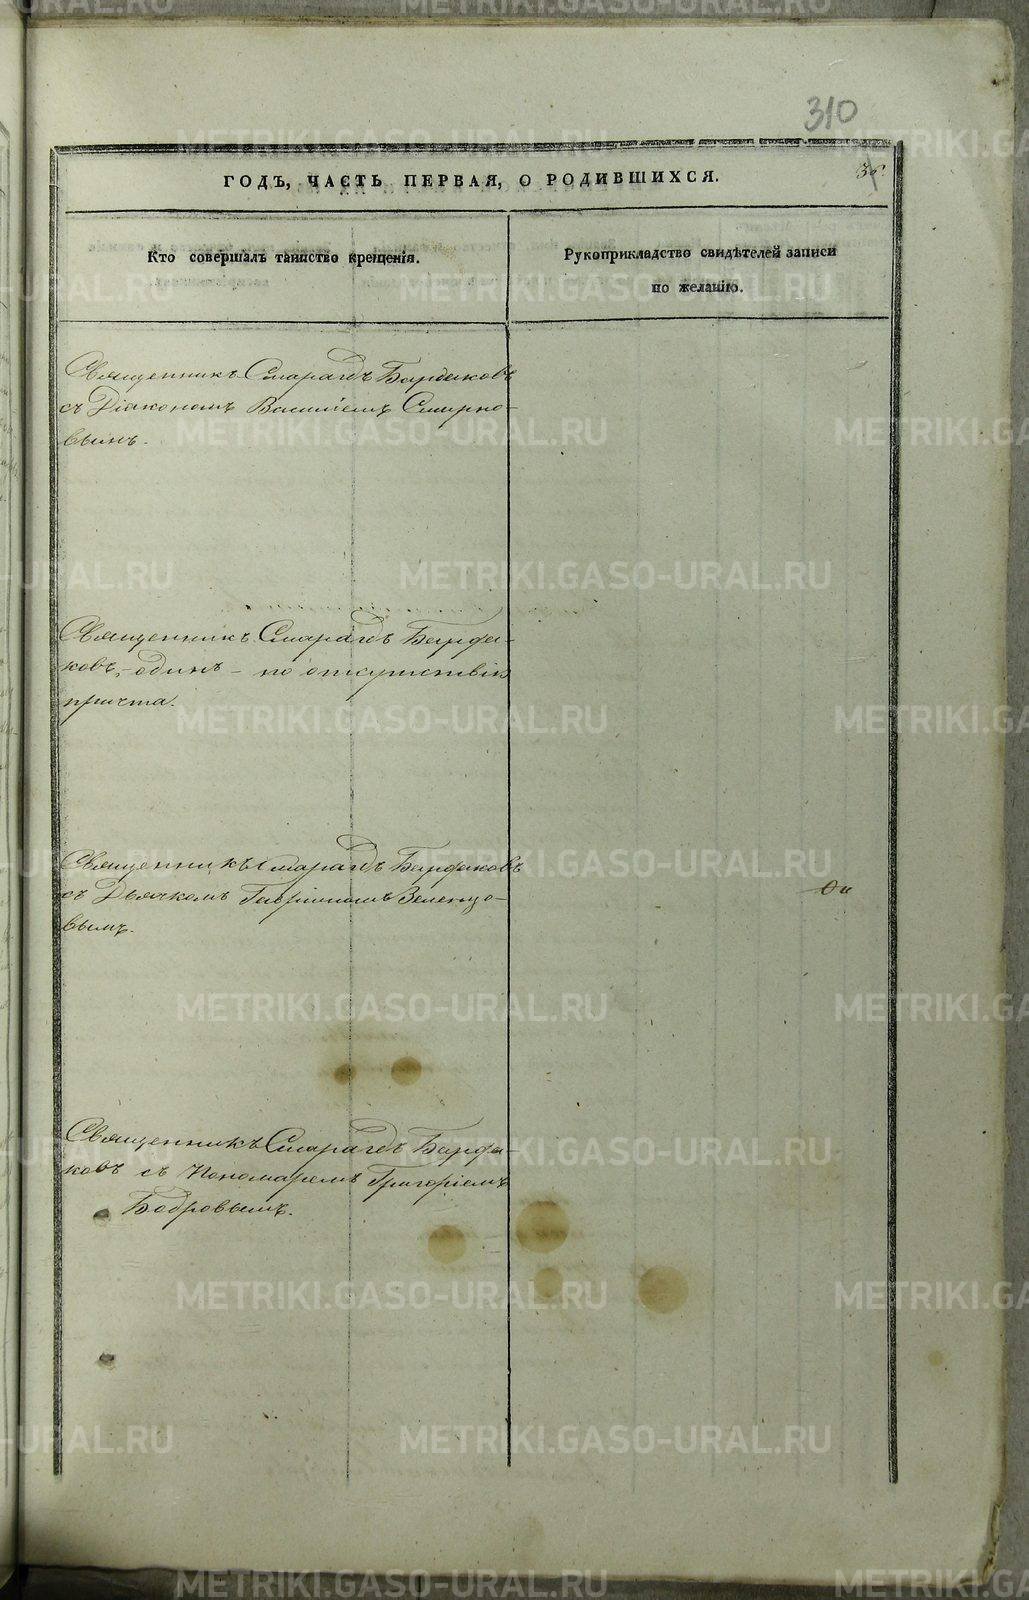 310
ГОДЪ, ЧАСТЬ ПЕРВАЯ, О РОДИВШИХСЯ.
Кто совершалъ таинство крещенія.
Рукоприкладство свидѣтелей записи
по желанію.
Священникъ Смарагдъ Бирдюковъ
съ Діакономъ Василіемъ Смирно-
вымъ.
Священникъ Смарагдъ Бирдю-
ковъ, одинъ – по отсутствію
причта.
Священникъ Смарагдъ Бирдюковъ
съ Дьячкомъ Гавріиломъ Зеленцо-
вымъ.
Священникъ Смарагдъ Бирдю-
ковъ съ Пономаремъ Григоріемъ
Бобровымъ.
METRIKI.GASO-URAL.RU